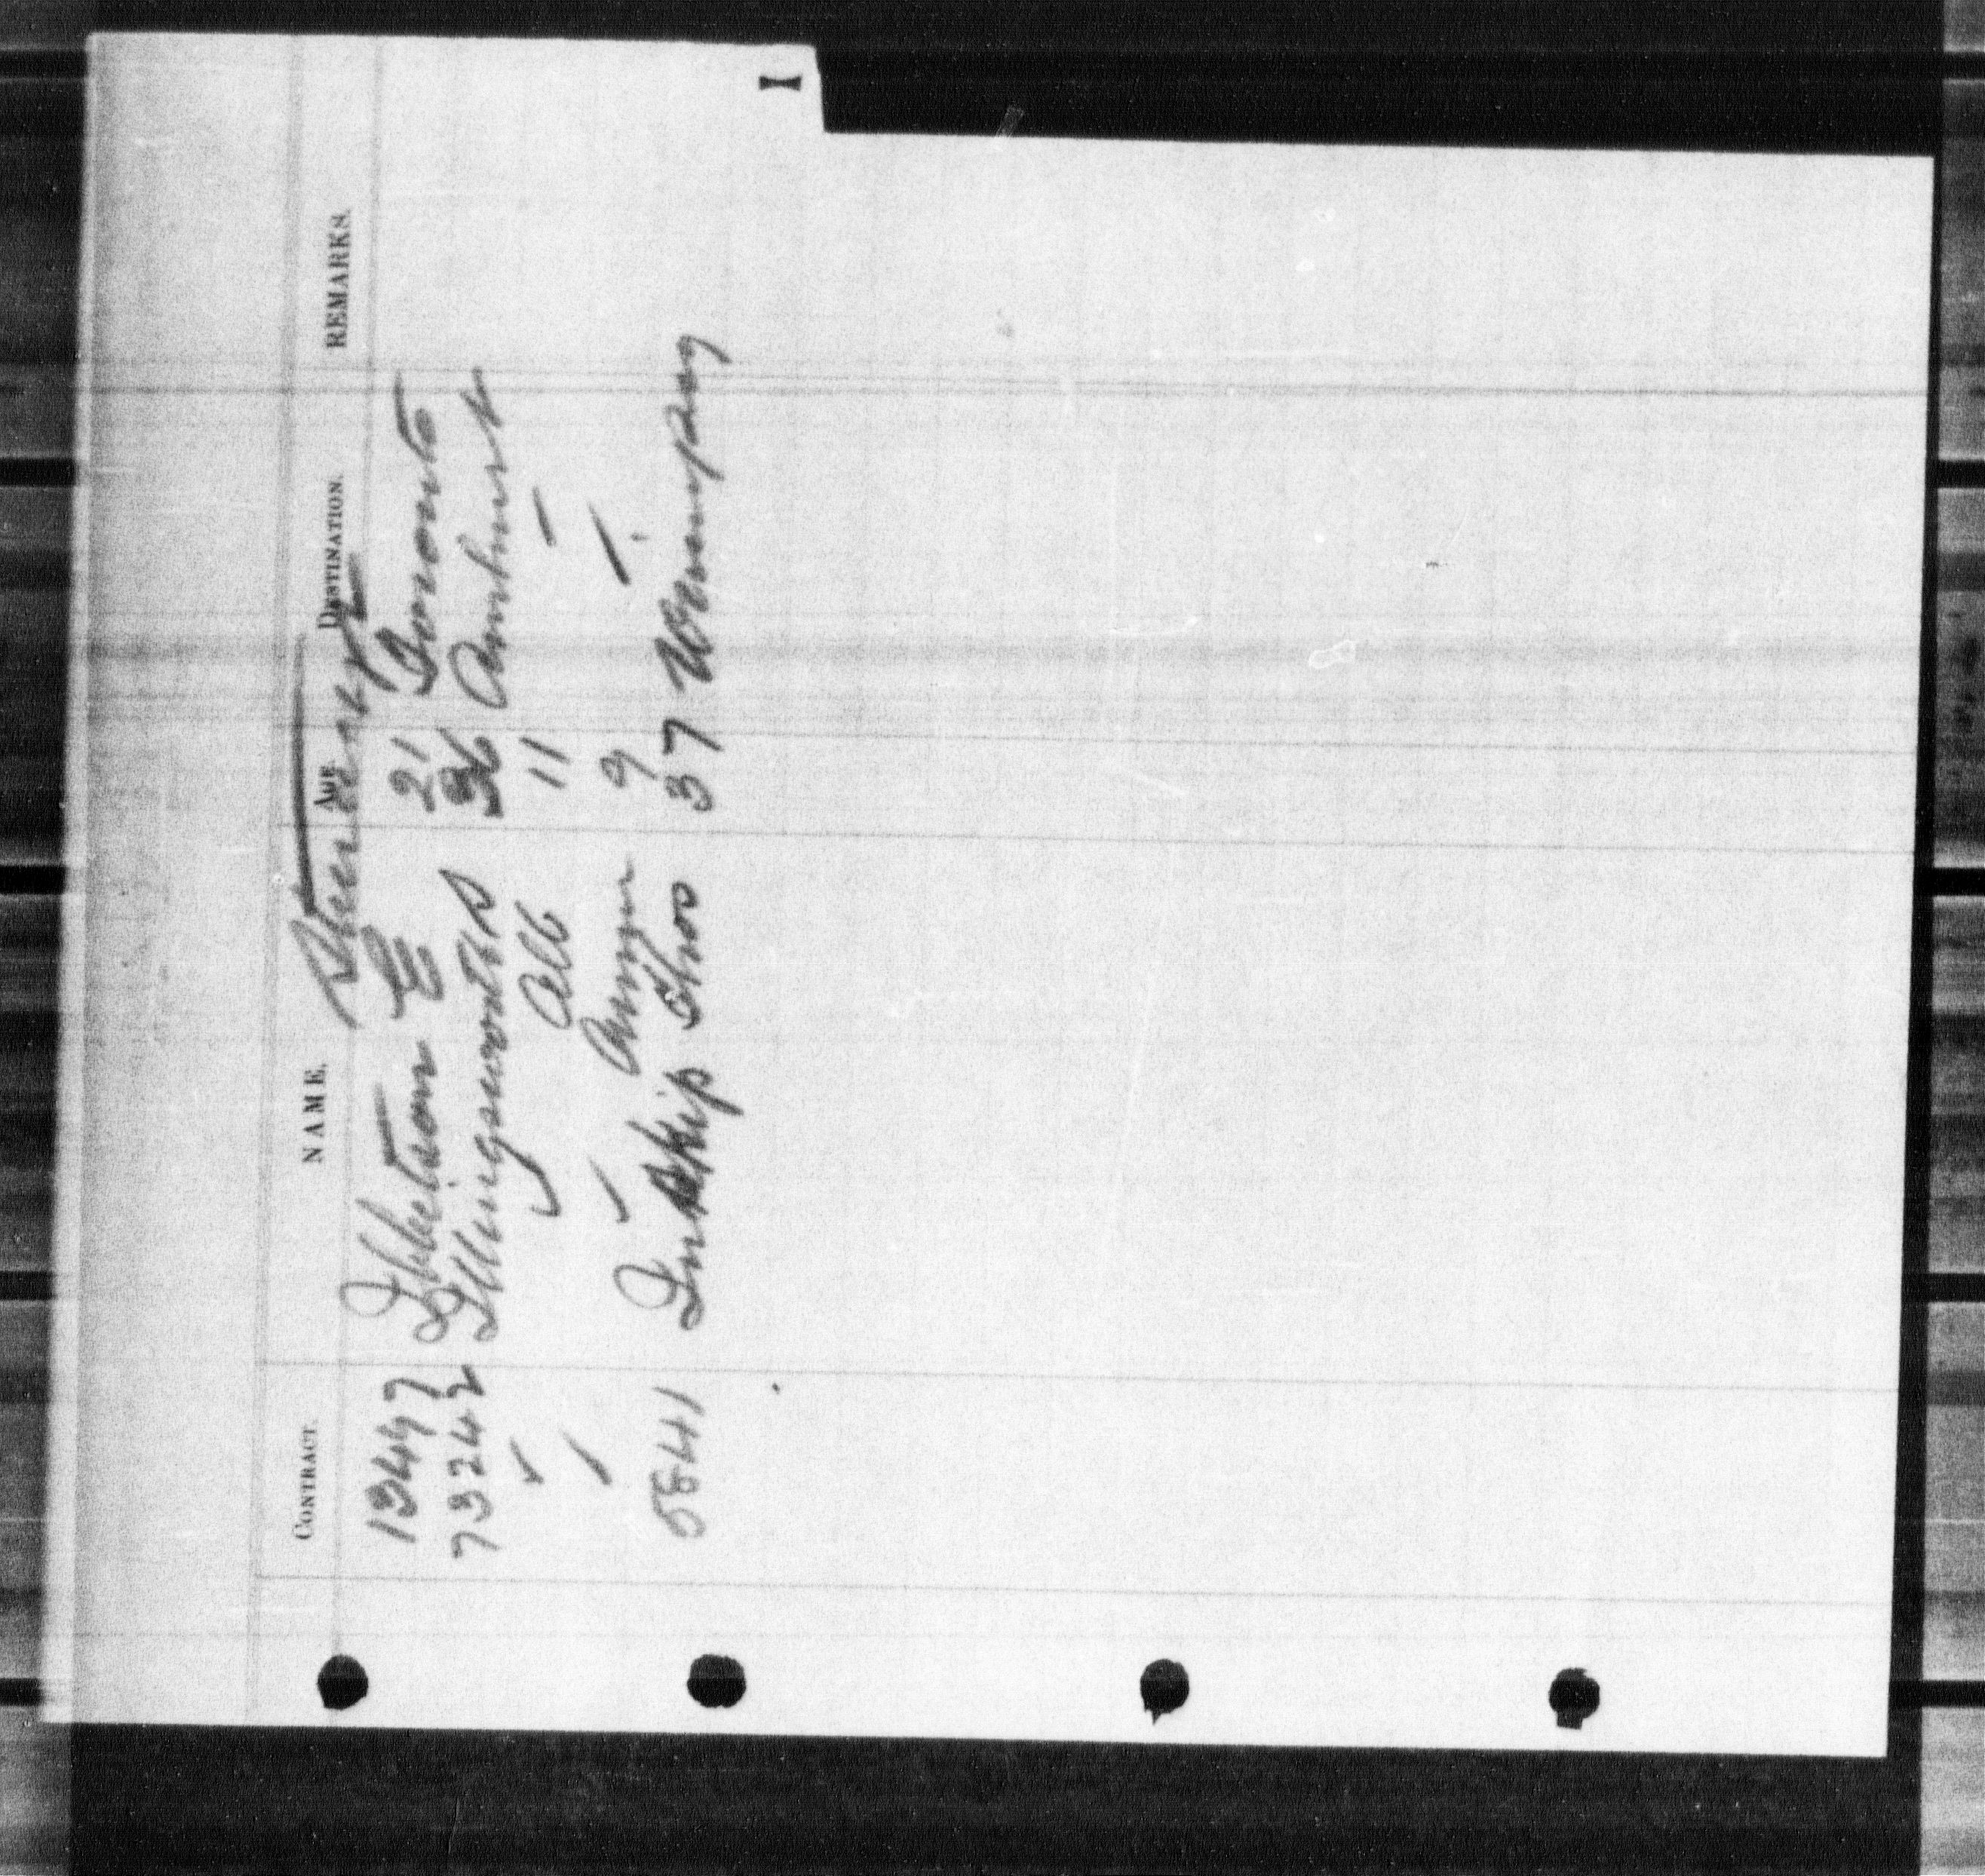 I
CONTRACT. NAME. AGE. DESTINATION. REMARKS.
13497 Ibbetson E 21 Toronto
73242 Illingsworth S 36 Amherst
✓ ✓ Alb 11 —
✓ ✓ Annie 9 —
5841 Inskip Thos 37 Winnipeg